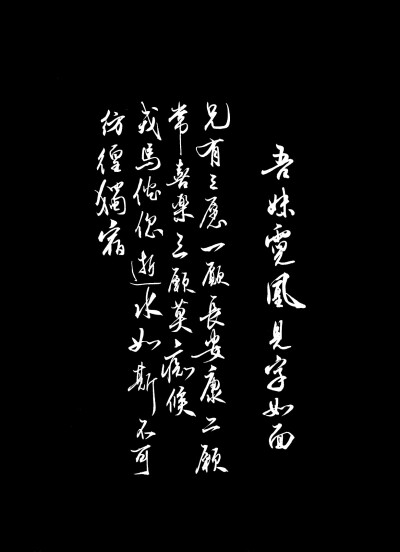 吾妹霓凰見字如面
兄有三愿一願長安康二願
常喜樂三願莫痴候
戎馬倥傯逝水如斯不可
彷徨獨宿